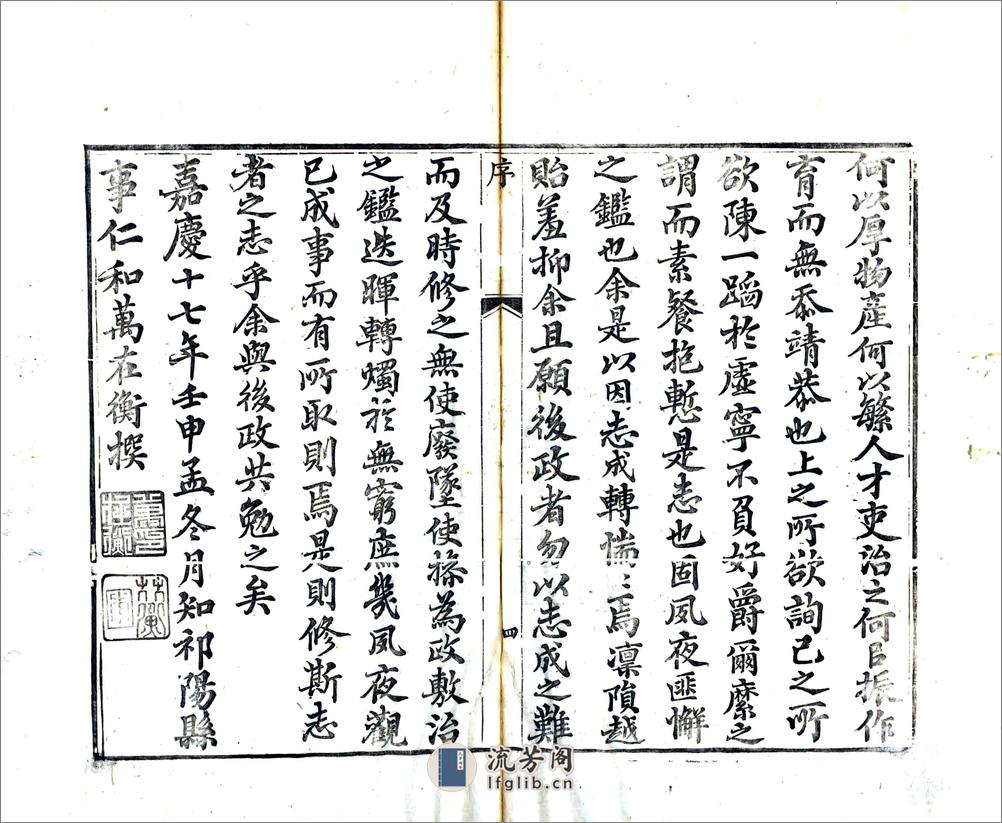 何以厚物產何以繁人才吏治之何㠯振作
育而無忝靖恭也上之所欲詢己之所
欲陳一蹈於虛寧不負好爵爾縻之
謂而素餐抱慙是志也固夙夜匪懈
之鑑也余是以因志成轉惴〻焉凛隕越
貽羞抑余且願後政者勿以志成之難
序
四
而及時修之無使廢墜使搽為政敷治
之鑑迭暉轉燭於無窮庶幾夙夜觀
已成事而有所取則焉是則修斯志
者之志乎余與後政共勉之矣
嘉慶十七年壬申孟冬月知祁陽縣
事仁和萬在衡撰
流芳阁
lfglib.cn